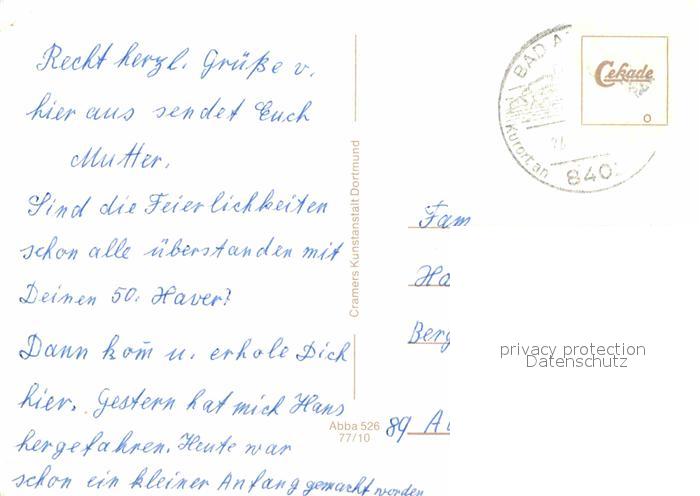 Recht herzl. Grüße v.
hier aus sendet Euch
Mutter.
Sind die Feierlichkeiten
schon alle überstanden mit
Deinen 50. Haver?
Dann kom̄ u. erhole Dich
hier. Gestern hat mich Hans
hergefahren. Heute war
schon ein kleiner Anfang gemacht worden
Cramers Kunstanstalt Dortmund
Abba 526
77/10
BAD A
Kurort an
840
Cekade
Fam
Ha
Berg
89 Au
privacy protection
Datenschutz